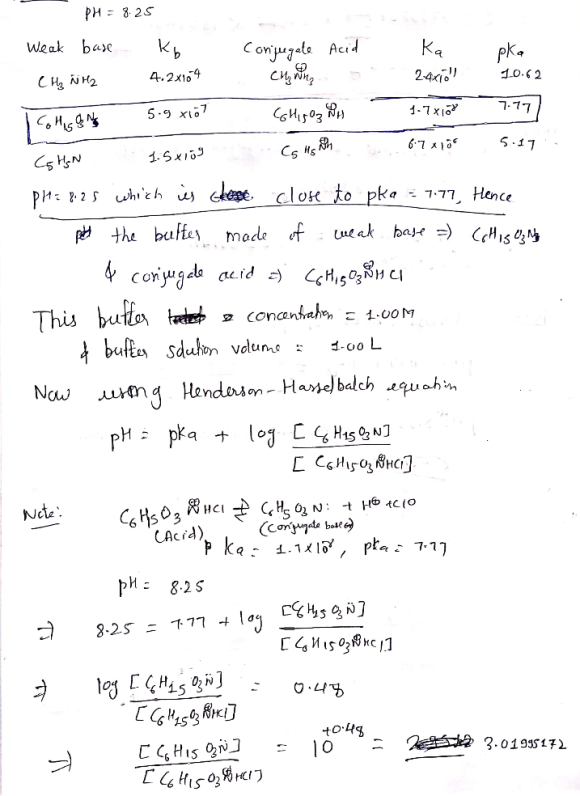 PH = 8.25
Weak base Kb Conjugate Acid Ka pKa
CH3 N̈H2 4.2x10⁻⁴ CH3 N⊕H3 2.4x10⁻¹¹ 10.62
C6H15O3N̈ 5.9 x10⁻⁷ C6H15O3 N⊕H 1.7x10⁻⁸ 7.77
C5H5N 1.5x10⁻⁹ C5H5 N⊕H 6.7x10⁻⁶ 5.17
PH = 8.25 which is close to pka = 7.77, Hence
the buffer made of weak base ⇒ C6H15O3N̈
& conjugate acid ⇒ C6H15O3N⊕H Cl
This buffer concentration = 1.00M
& buffer solution volume = 1.00 L
Now using Henderson-Hasselbalch equation
pH = pKa + log [C6H15O3N]
[C6H15O3N⊕HCl]
Note: C6H5O3 N⊕HCl ⇌ C6H5O3N: + H⊕ + ClO
(Acid) (Conjugate base)
Ka = 1.7x10⁻⁸, pKa = 7.77
pH = 8.25
⇒ 8.25 = 7.77 + log [C6H15O3N̈]
[C6H15O3N⊕HCl]
⇒ log [C6H15O3N̈] = 0.48
[C6H15O3N⊕HCl]
⇒ [C6H15O3N̈] = 10^+0.48 = 3.01995172
[C6H15O3N⊕HCl]